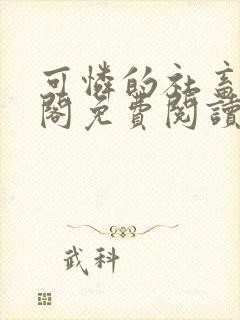 可憐的社畜
閣免費閱讀
武科